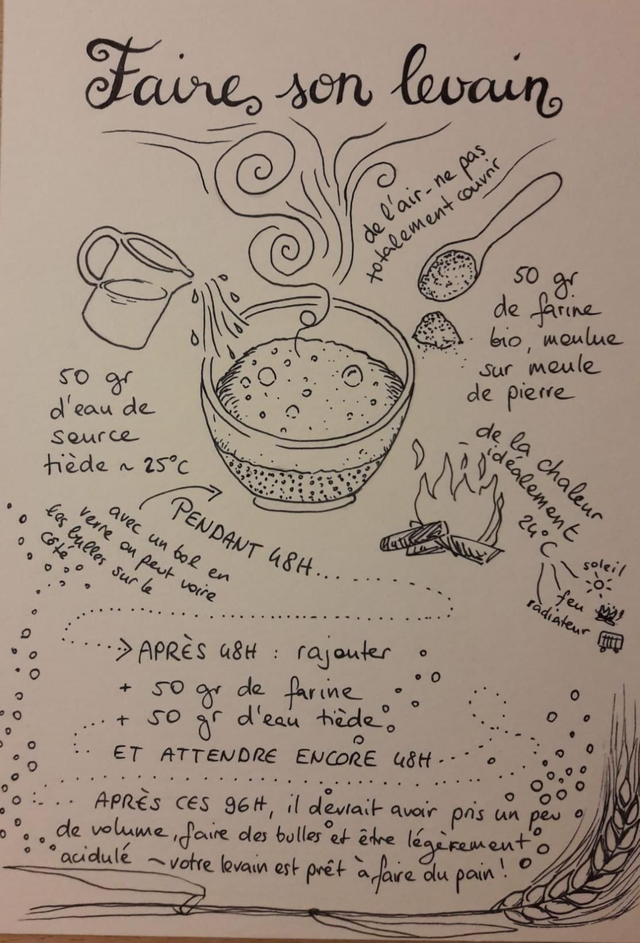 Faire son levain
de l'air - ne pas
totalement couvrir
50 gr
de farine
bio, moulue
sur meule
de pierre
50 gr
d'eau de
source
tiède ~ 25°C
de la chaleur
idéalement
24°C
soleil
feu
radiateur
avec un bol en
verre on peut voire
les bulles sur le
côté
PENDANT 48H...
APRÈS 48H : rajouter
+ 50 gr de farine
+ 50 gr d'eau tiède
ET ATTENDRE ENCORE 48H...
APRÈS CES 96H, il devrait avoir pris un peu
de volume, faire des bulles et être légèrement
acidulé ~ votre levain est prêt à faire du pain !